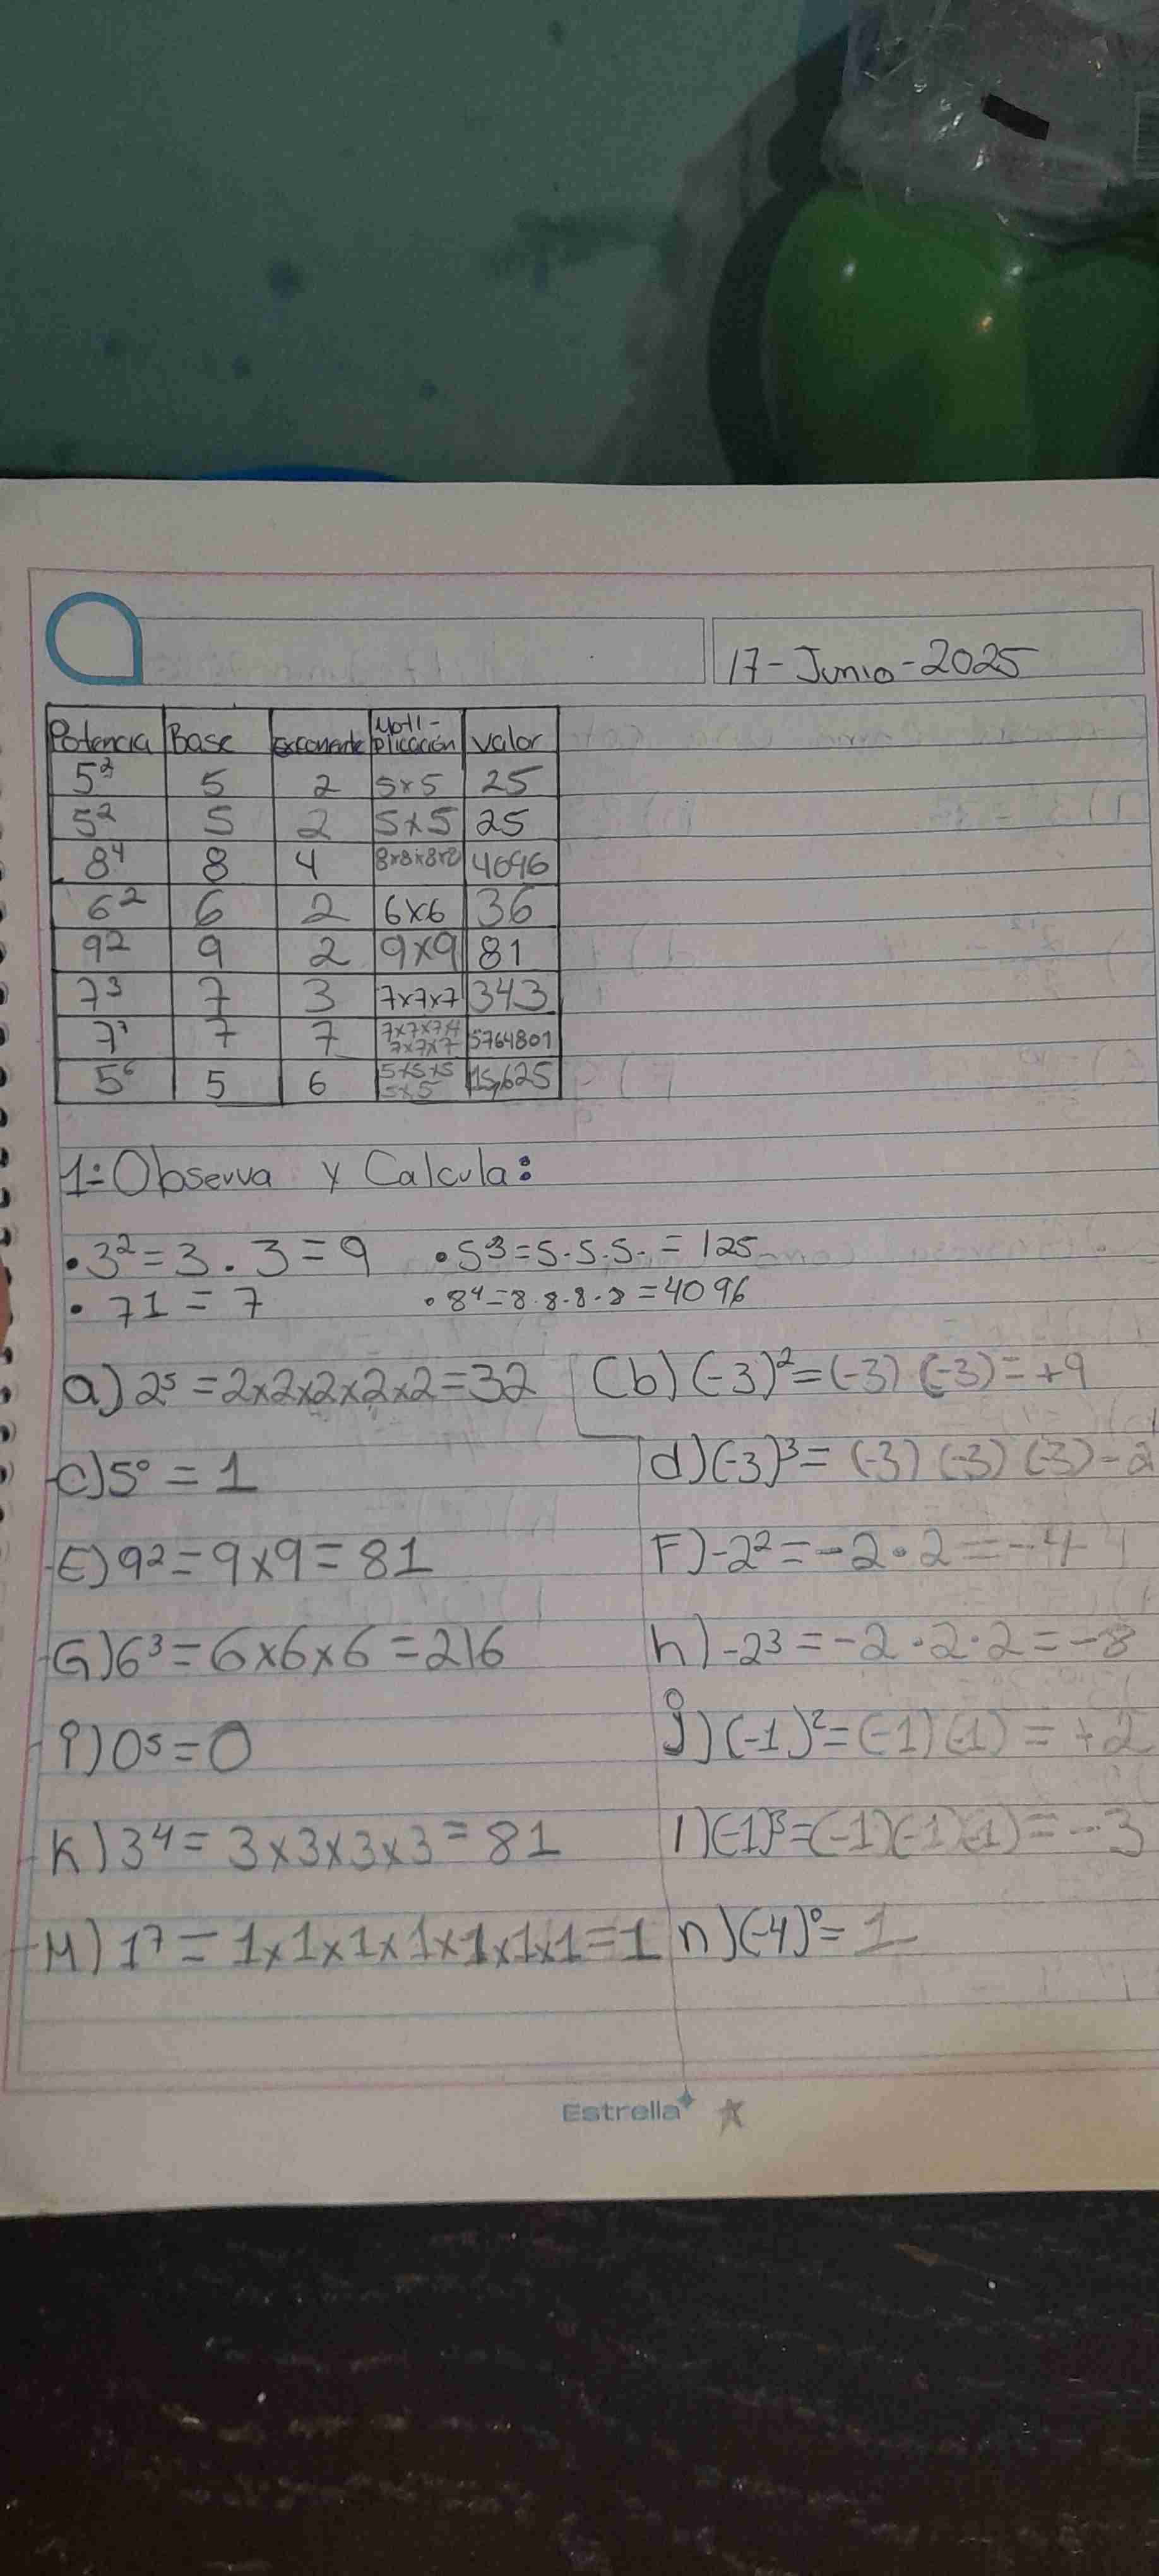 17-Junio-2025
Potencia Base exponente Multi-plicación valor
5² 5 2 5x5 25
5² 5 2 5x5 25
8⁴ 8 4 8x8x8x8 4096
6² 6 2 6x6 36
9² 9 2 9x9 81
7³ 7 3 7x7x7 343
7⁷ 7 7 7x7x7x7 7x7x7 5764801
5⁶ 5 6 5x5x5 5x5 15,625
1-Observa y Calcula:
•3²=3.3=9 •5³=5.5.5.=125
• 71=7 •8⁴=8.8.8.8=4096
a) 2⁵=2x2x2x2x2=32 (b) (-3)²=(-3)(-3)=+9
c) 5⁰=1 d) (-3)³=(-3)(-3)(-3)-2
E) 9²=9x9=81 F) -2²=-2•2=-4
G) 6³=6x6x6=216 h) -2³=-2•2•2=-8
i) 0⁵=0 j) (-1)²=(-1)(-1)=+2
K) 3⁴=3x3x3x3=81 l) (-1)³=(-1)(-1)(-1)=-3
M) 1⁷=1x1x1x1x1x1x1=1 n) (-4)⁰=1
Estrella